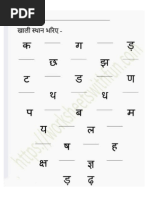 खाली स्थान भरिए -
क ग ड़
छ झ
ट ड ण
थ ध
प ब म
य ल
श ह
क्ष ज्ञ
ड़ ढ़